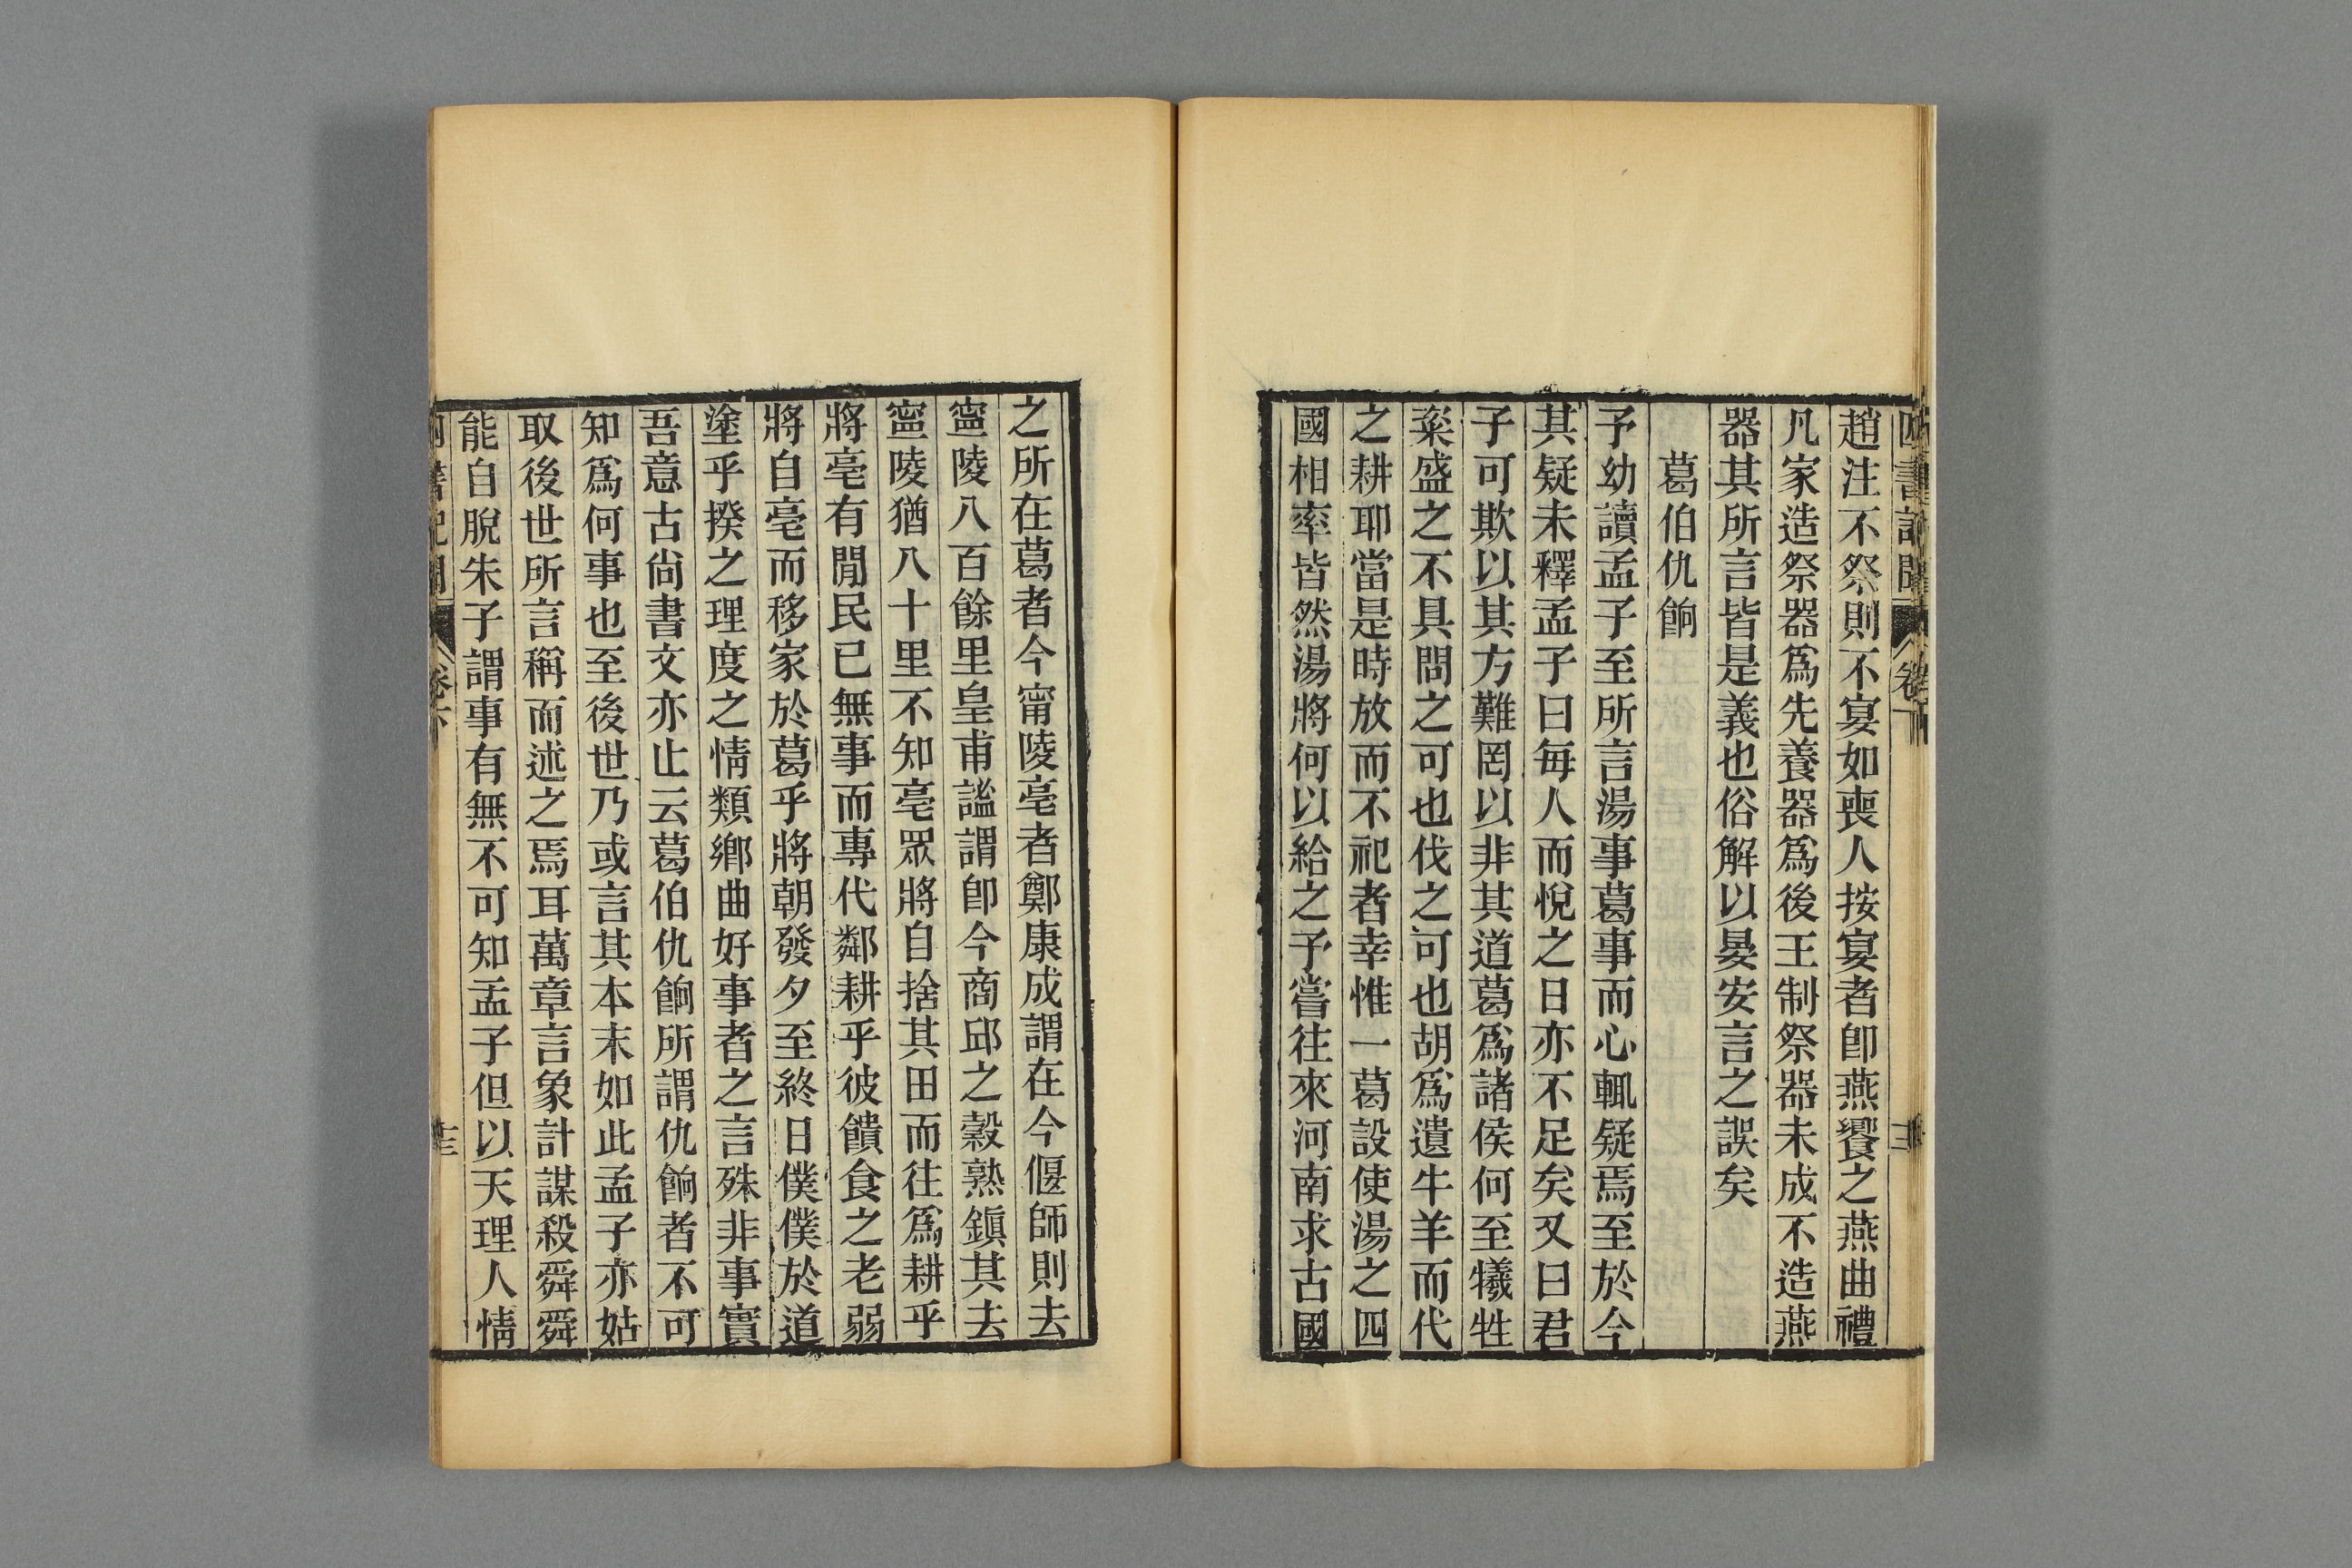 趙注不祭則不宴如喪人按宴者卽燕饗之燕曲禮
凡家造祭器爲先養器爲後王制祭器未成不造燕
器其所言皆是義也俗解以晏安言之誤矣
葛伯仇餉
予幼讀孟子至所言湯事葛事而心輒疑焉至於今
其疑未釋孟子曰每人而悅之日亦不足矣又曰君
子可欺以其方難罔以非其道葛爲諸侯何至犧牲
粢盛之不具問之可也伐之可也胡爲遺牛羊而代
之耕耶當是時放而不祀者幸惟一葛設使湯之四
國相率皆然湯將何以給之予嘗往來河南求古國
之所在葛者今甯陵亳者鄭康成謂在今偃師則去
甯陵八百餘里皇甫謐謂卽今商邱之穀熟鎭其去
甯陵猶八十里不知亳眾將自捨其田而往爲耕乎
將亳有閒民已無事而專代鄰耕乎彼饋食之老弱
將自亳而移家於葛乎將朝發夕至終日僕僕於道
塗乎揆之理度之情類鄉曲好事者之言殊非事實
吾意古尙書文亦止云葛伯仇餉所謂仇餉者不可
知爲何事也至後世乃或言其本末如此孟子亦姑
取後世所言稱而述之焉耳萬章言象計謀殺舜舜
能自脫朱子謂事有無不可知孟子但以天理人情